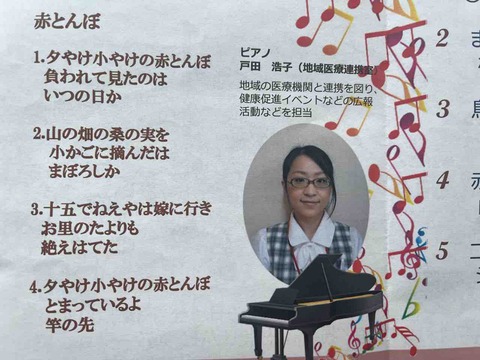 赤とんぼ
1.夕やけ小やけの赤とんぼ
負われて見たのは
いつの日か
2.山の畑の桑の実を
小かごに摘んだは
まぼろしか
3.十五でねえやは嫁に行き
お里のたよりも
絶えはてた
4.夕やけ小やけの赤とんぼ
とまっているよ
竿の先
ピアノ
戸田 浩子（地域医療連携室）
地域の医療機関と連携を図り、
健康促進イベントなどの広報
活動などを担当
2
3
4
5